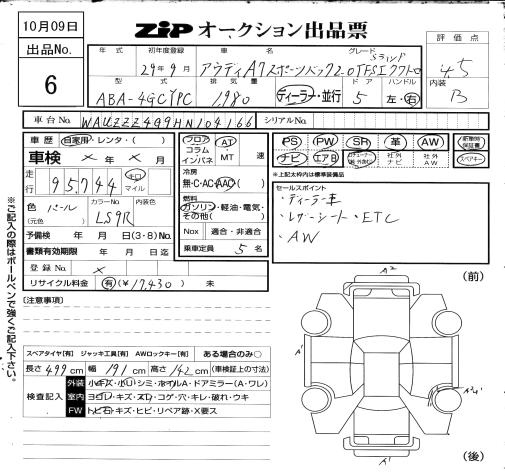 10月09日
ZiP オークション出品票
出品No.
6
年式 初年度登録 車名 グレード 評価点
29年9月 アウディ A7スポーツバック2.0TFSIクワトロ
4.5
型式 排気量 ドア ハンドル 内装
ABA-4GCYPC 1,980 ディーラー・並行 5 左・右 B
車台No. WAUZZZ4G9HN104166 シリアルNo.
車歴 自家用・レンタ・( )
車検 × 年 × 月
走行 95,744 キロ マイル
色 パール カラーNo. LS9R 内装色
(元色)
予備検 年 月 日(3・8)No.
書類有効期限 年 月 日迄
登録No. ×
リサイクル料金 有(¥17,430) 未
フロア コラム インパネ AT MT 速
冷房
無・C・AC・AAC( )
燃料
ガソリン・軽油・電気・その他( )
Nox 適合・非適合
乗車定員 5名
PS PW SR 革 AW 新車時保証書
ナビ エアB 社外ナビ 社外AW スペアキー
※上記太枠内は標準装備品
セールスポイント
・ディーラー車
・レザーシート ・ETC
・AW
[注意事項]
※ご記入の際はボールペンで強くご記入下さい。
スペアタイヤ[有] ジャッキ工具[有] AWロックキー[有] ある場合のみ○
長さ 499cm 幅 191cm 高さ 142cm (車検証上の寸法)
検査記入
外装 小キズ・小凹・シミ・ホイルA・ドアミラー(A・ワレ)
室内 ヨゴレ・キズ・スレ・コゲ・穴・キレ・破れ・ウキ
FW トビ石・キズ・ヒビ・リペア跡・X要ス
(前)
A2
A'
A'
(後)